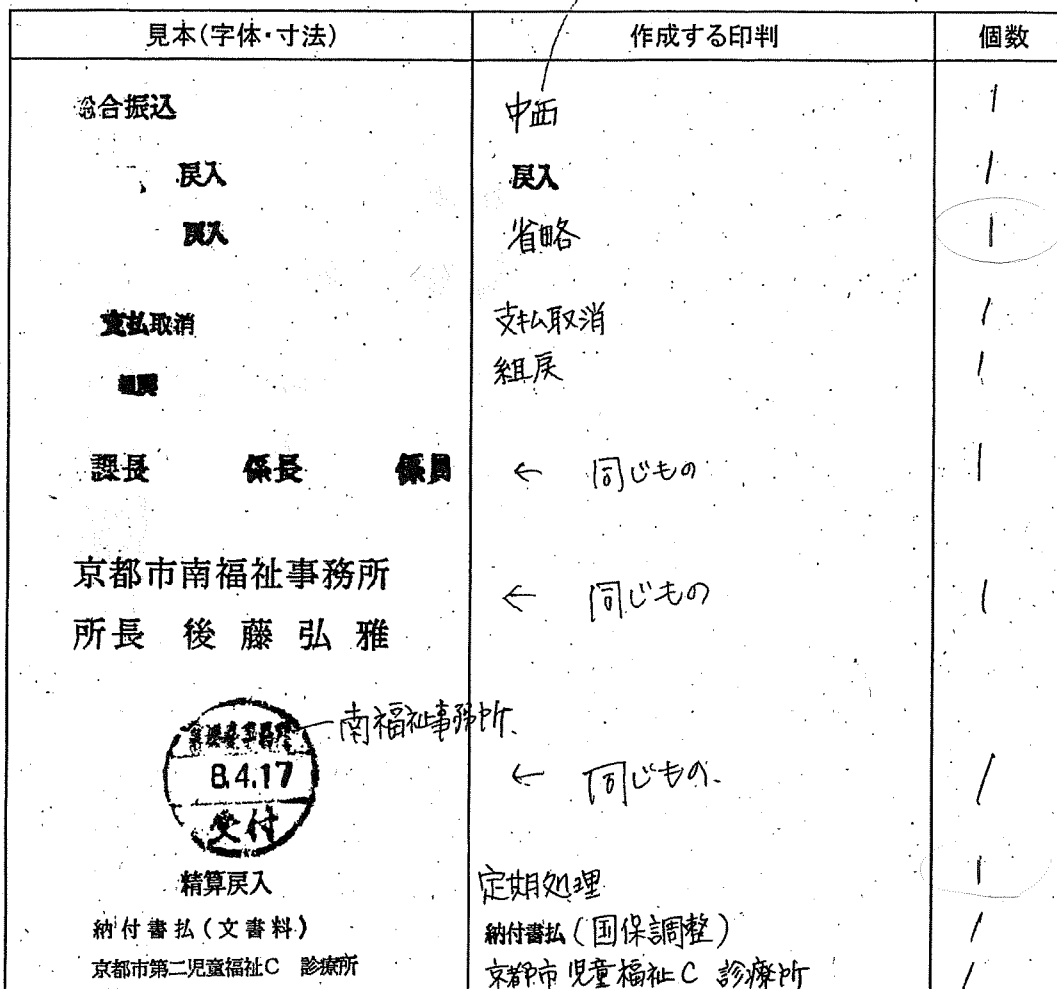 見本(字体・寸法) 作成する印判 個数
総合振込 中西 1
戻入 戻入 1
戻入 省略 1
支払取消 支払取消 1
組戻 組戻 1
課長 係長 係員 ← 同じもの 1
京都市南福祉事務所
所長 後藤弘雅 ← 同じもの 1
南福祉事務所.
8.4.17 ← 同じもの. 1
受付
精算戻入 定期処理 1
納付書払(文書料) 納付書払(国保調整) 1
京都市第二児童福祉C 診療所 京都市児童福祉C 診療所 1